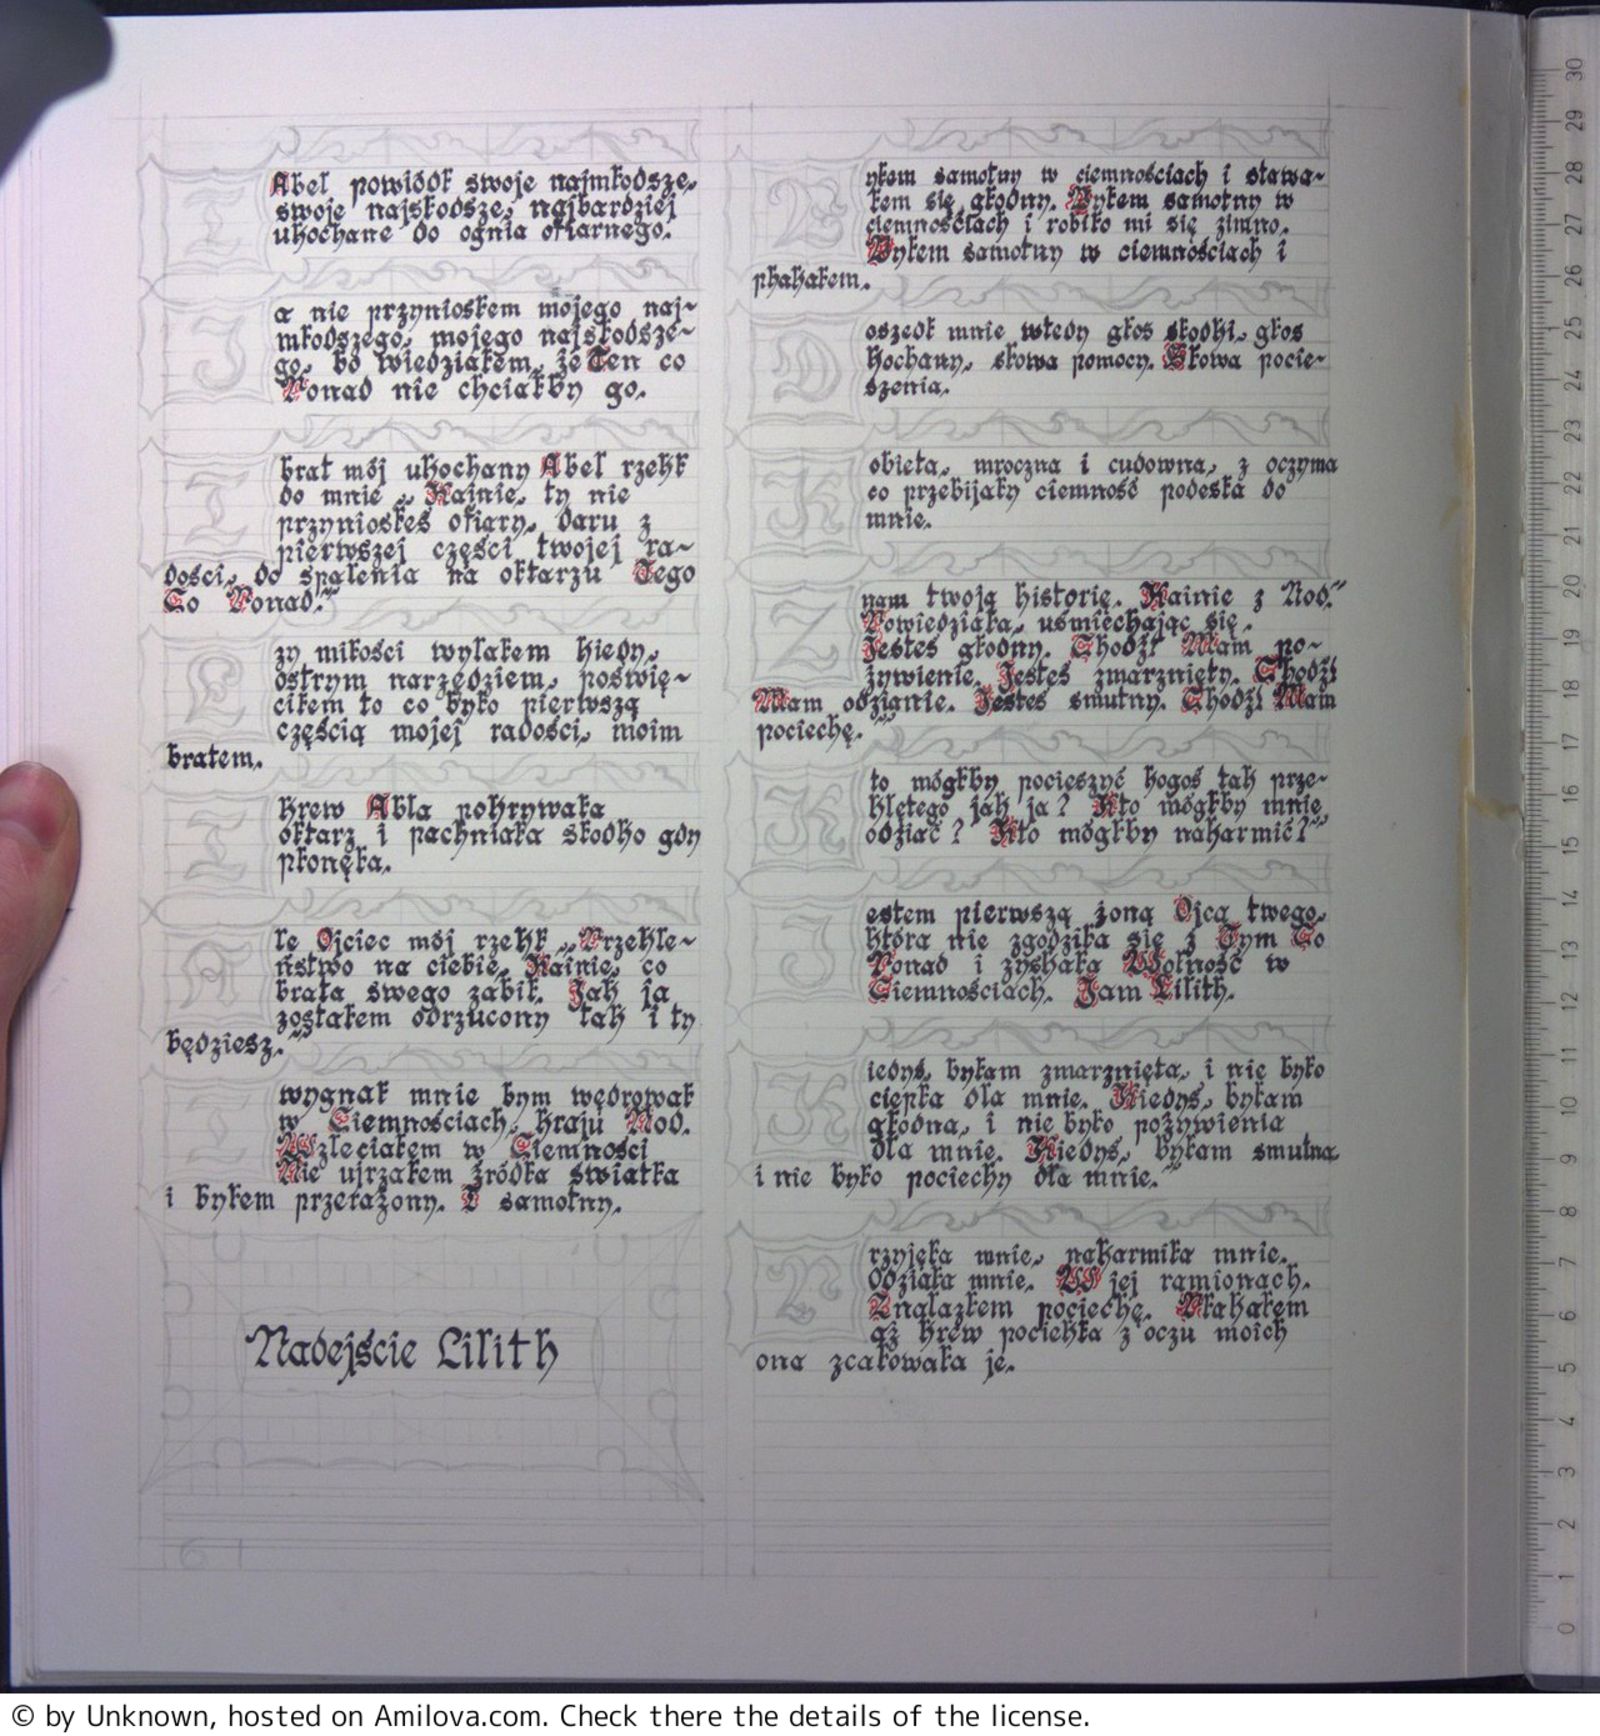 I
Abel powiódł swoje najmłodsze,
swoje najsłodsze, najbardziej
ukochane do ognia ofiarnego.
J
a nie przyniosłem mojego naj-
młodszego, mojego najsłodsze-
go, bo wiedziałem, że Ten co
Ponad nie chciałby go.
I
brat mój ukochany Abel rzekł
do mnie „Kainie, ty nie
przyniosłeś ofiary, daru z
pierwszej części twojej ra-
dości, do spalenia na ołtarzu Tego
Co Ponad."
Ł
zy miłości wylałem kiedy,
ostrym narzędziem, poświę-
ciłem to co było pierwszą
częścią mojej radości, moim
bratem.
I
krew Abla pokrywała
ołtarz i pachniała słodko gdy
płonęła.
A
le Ojciec mój rzekł „Przekle-
ństwo na ciebie, Kainie, co
brata swego zabił. Jak ja
zostałem odrzucony tak i ty
będziesz."
I
wygnał mnie bym wędrował
w Ciemnościach, kraju Nod.
Wzleciałem w Ciemności
Nie ujrzałem źródła światła
i byłem przerażony. I samotny.
Nadejście Lilith
61
B
yłem samotny w ciemnościach i stawa-
łem się głodny. Byłem samotny w
ciemnościach i robiło mi się zimno.
Byłem samotny w ciemnościach i
płakałem.
D
oszedł mnie wtedy głos słodki, głos
kochany, słowa pomocy. Słowa pocie-
szenia.
K
obieta, mroczna i cudowna, z oczyma
co przebijały ciemność podeszła do
mnie.
Z
nam twoją historię, Kainie z Nod."
Powiedziała, uśmiechając się.
Jesteś głodny. Chodź! Mam po-
żywienie. Jesteś zmarznięty. Chodź!
Mam odzianie. Jesteś smutny. Chodź! Mam
pociechę."
K
to mógłby pocieszyć kogoś tak prze-
klętego jak ja? Kto mógłby mnie
odziać? Kto mógłby nakarmić?"
J
estem pierwszą żoną Ojca twego,
która nie zgodziła się z Tym Co
Ponad i zyskała Wolność w
Ciemnościach. Jam Lilith.
K
iedyś, byłam zmarznięta, i nie było
ciepła dla mnie. Kiedyś, byłam
głodna, i nie było pożywienia
dla mnie. Kiedyś, byłam smutna
i nie było pociechy dla mnie."
P
rzyjęła mnie, nakarmiła mnie.
Odziała mnie. W jej ramionach.
Znalazłem pociechę. Płakałem
aż krew pociekła z oczu moich
ona zcałowała je.
30
29
28
27
26
25
24
23
22
21
20
19
18
17
16
15
14
13
12
11
10
9
8
7
6
5
4
3
2
1
0
© by Unknown, hosted on Amilova.com. Check there the details of the license.